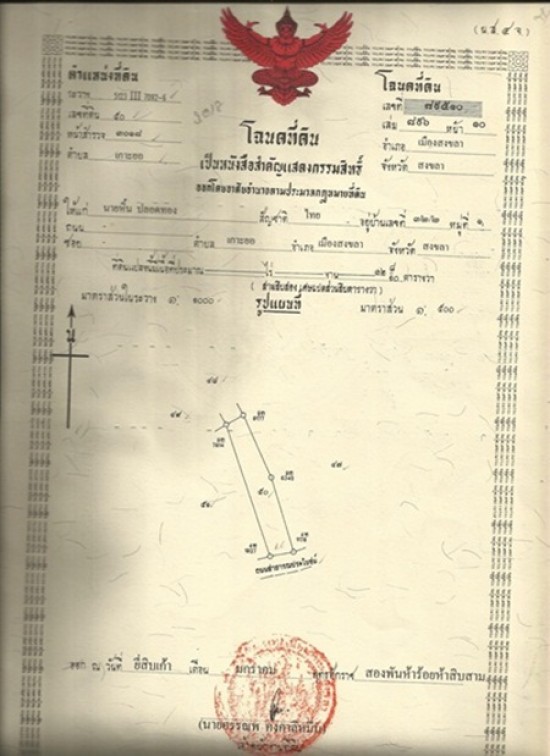 (น.ส. ๔ จ.)
ตำแหน่งที่ดิน
ระวาง 5123 III
เลขที่ดิน ๕๐
หน้าสำรวจ ๓๐๑๘
ตำบล เกาะยอ
โฉนดที่ดิน
เลขที่ ๗๙๕๑๐
เล่ม ๗๙๖ หน้า ๑๐
อำเภอ เมืองสงขลา
จังหวัด สงขลา
โฉนดที่ดิน
เป็นหนังสือสำคัญแสดงกรรมสิทธิ์
ออกโดยอาศัยอำนาจตามประมวลกฎหมายที่ดิน
ให้แก่ ปลอดทอง สัญชาติ ไทย อยู่บ้านเลขที่ ๓๒/๒ หมู่ที่ ๑
ถนน
ซอย ตำบล เกาะยอ อำเภอ เมืองสงขลา จังหวัด สงขลา
ที่ดินแปลงนี้มีเนื้อที่ประมาณ ไร่ งาน ตารางวา
มาตราส่วนในระวาง ๑: ๑๐๐๐ รูปแผนที่ มาตราส่วน ๑: ๕๐๐
น
๔๘
๔๙
๕๐
๔๗
๕๑
ถนนสาธารณประโยชน์
ออก ณ วันที่ ยี่สิบเก้า เดือน มกราคม พุทธศักราช สองพันห้าร้อยห้าสิบสาม